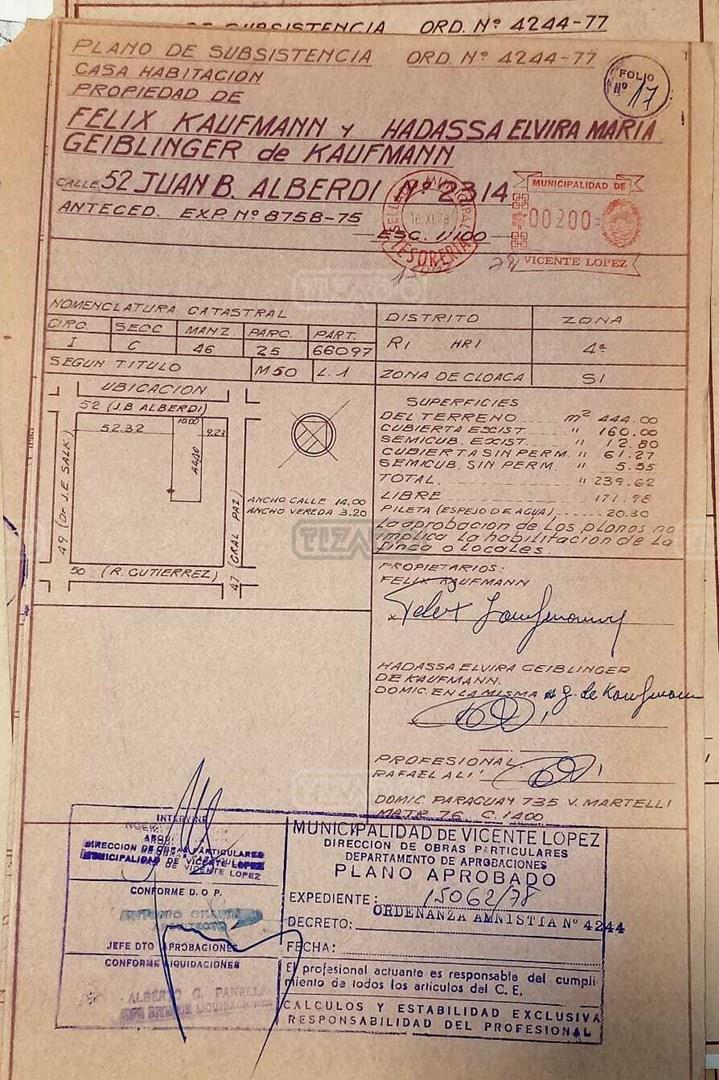 DE SUBSISTENCIA ORD. Nº 4244-77
PLANO DE SUBSISTENCIA ORD. Nº 4244-77
CASA HABITACION
PROPIEDAD DE
FOLIO
Nº 17
FELIX KAUFMANN y HADASSA ELVIRA MARIA
GEIBLINGER de KAUFMANN
CALLE 52 JUAN B. ALBERDI Nº 2314
ANTECED. EXP. Nº 8758-75
ESC. 1:100
SELLADO MUNICIPAL
16 XI. 78
TESORERIA
MUNICIPALIDAD DE
00200
VICENTE LOPEZ
NOMENCLATURA CATASTRAL
CIRC. SECC MANZ. PARC. PART.
I C 46 25 66097
SEGUN TITULO M50 L.1
DISTRITO ZONA
R1 HR1 4ª
ZONA DE CLOACA SI
UBICACION
52 (J.B ALBERDI)
52.32
10.00
9.23
44.40
49 (Dr. J.E. SALK)
47 (GRAL PAZ)
50 (R. GUTIERREZ)
ANCHO CALLE 14.00
ANCHO VEREDA 3.20
SUPERFICIES
DEL TERRENO m² 444.00
CUBIERTA EXIST. " 160.00
SEMICUB. EXIST. " 12.80
CUBIERTA SIN PERM. " 61.27
SEMICUB. SIN PERM. " 5.55
TOTAL " 239.62
LIBRE 171.98
PILETA (ESPEJO DE AGUA) 20.30
La aprobacion de los planos no
implica la habilitacion de la
finca o locales.
TIZADO
PROPIETARIOS:
FELIX KAUFMANN
Felix Kaufmann
HADASSA ELVIRA GEIBLINGER
DE KAUFMANN.
DOMIC. EN LA MISMA
g. de Kaufmann
PROFESIONAL
RAFAEL ALI
DOMIC. PARAGUAY 735 V. MARTELLI
MATR. 76 C. 1400
INTERVINE
DIRECCION DE OBRAS PARTICULARES
MUNICIPALIDAD DE VICENTE LOPEZ
CONFORME D. O. P.
JEFE DTO APROBACIONES
CONFORME LIQUIDACIONES
ALBERTO G. PANELLA
MUNICIPALIDAD DE VICENTE LOPEZ
DIRECCION DE OBRAS PARTICULARES
DEPARTAMENTO DE APROBACIONES
PLANO APROBADO
EXPEDIENTE: 15062/78
DECRETO: ORDENANZA AMNISTIA Nº 4244
FECHA:
El profesional actuante es responsable del cumpli-
miento de todos los artículos del C. E.
CALCULOS Y ESTABILIDAD EXCLUSIVA
RESPONSABILIDAD DEL PROFESIONAL